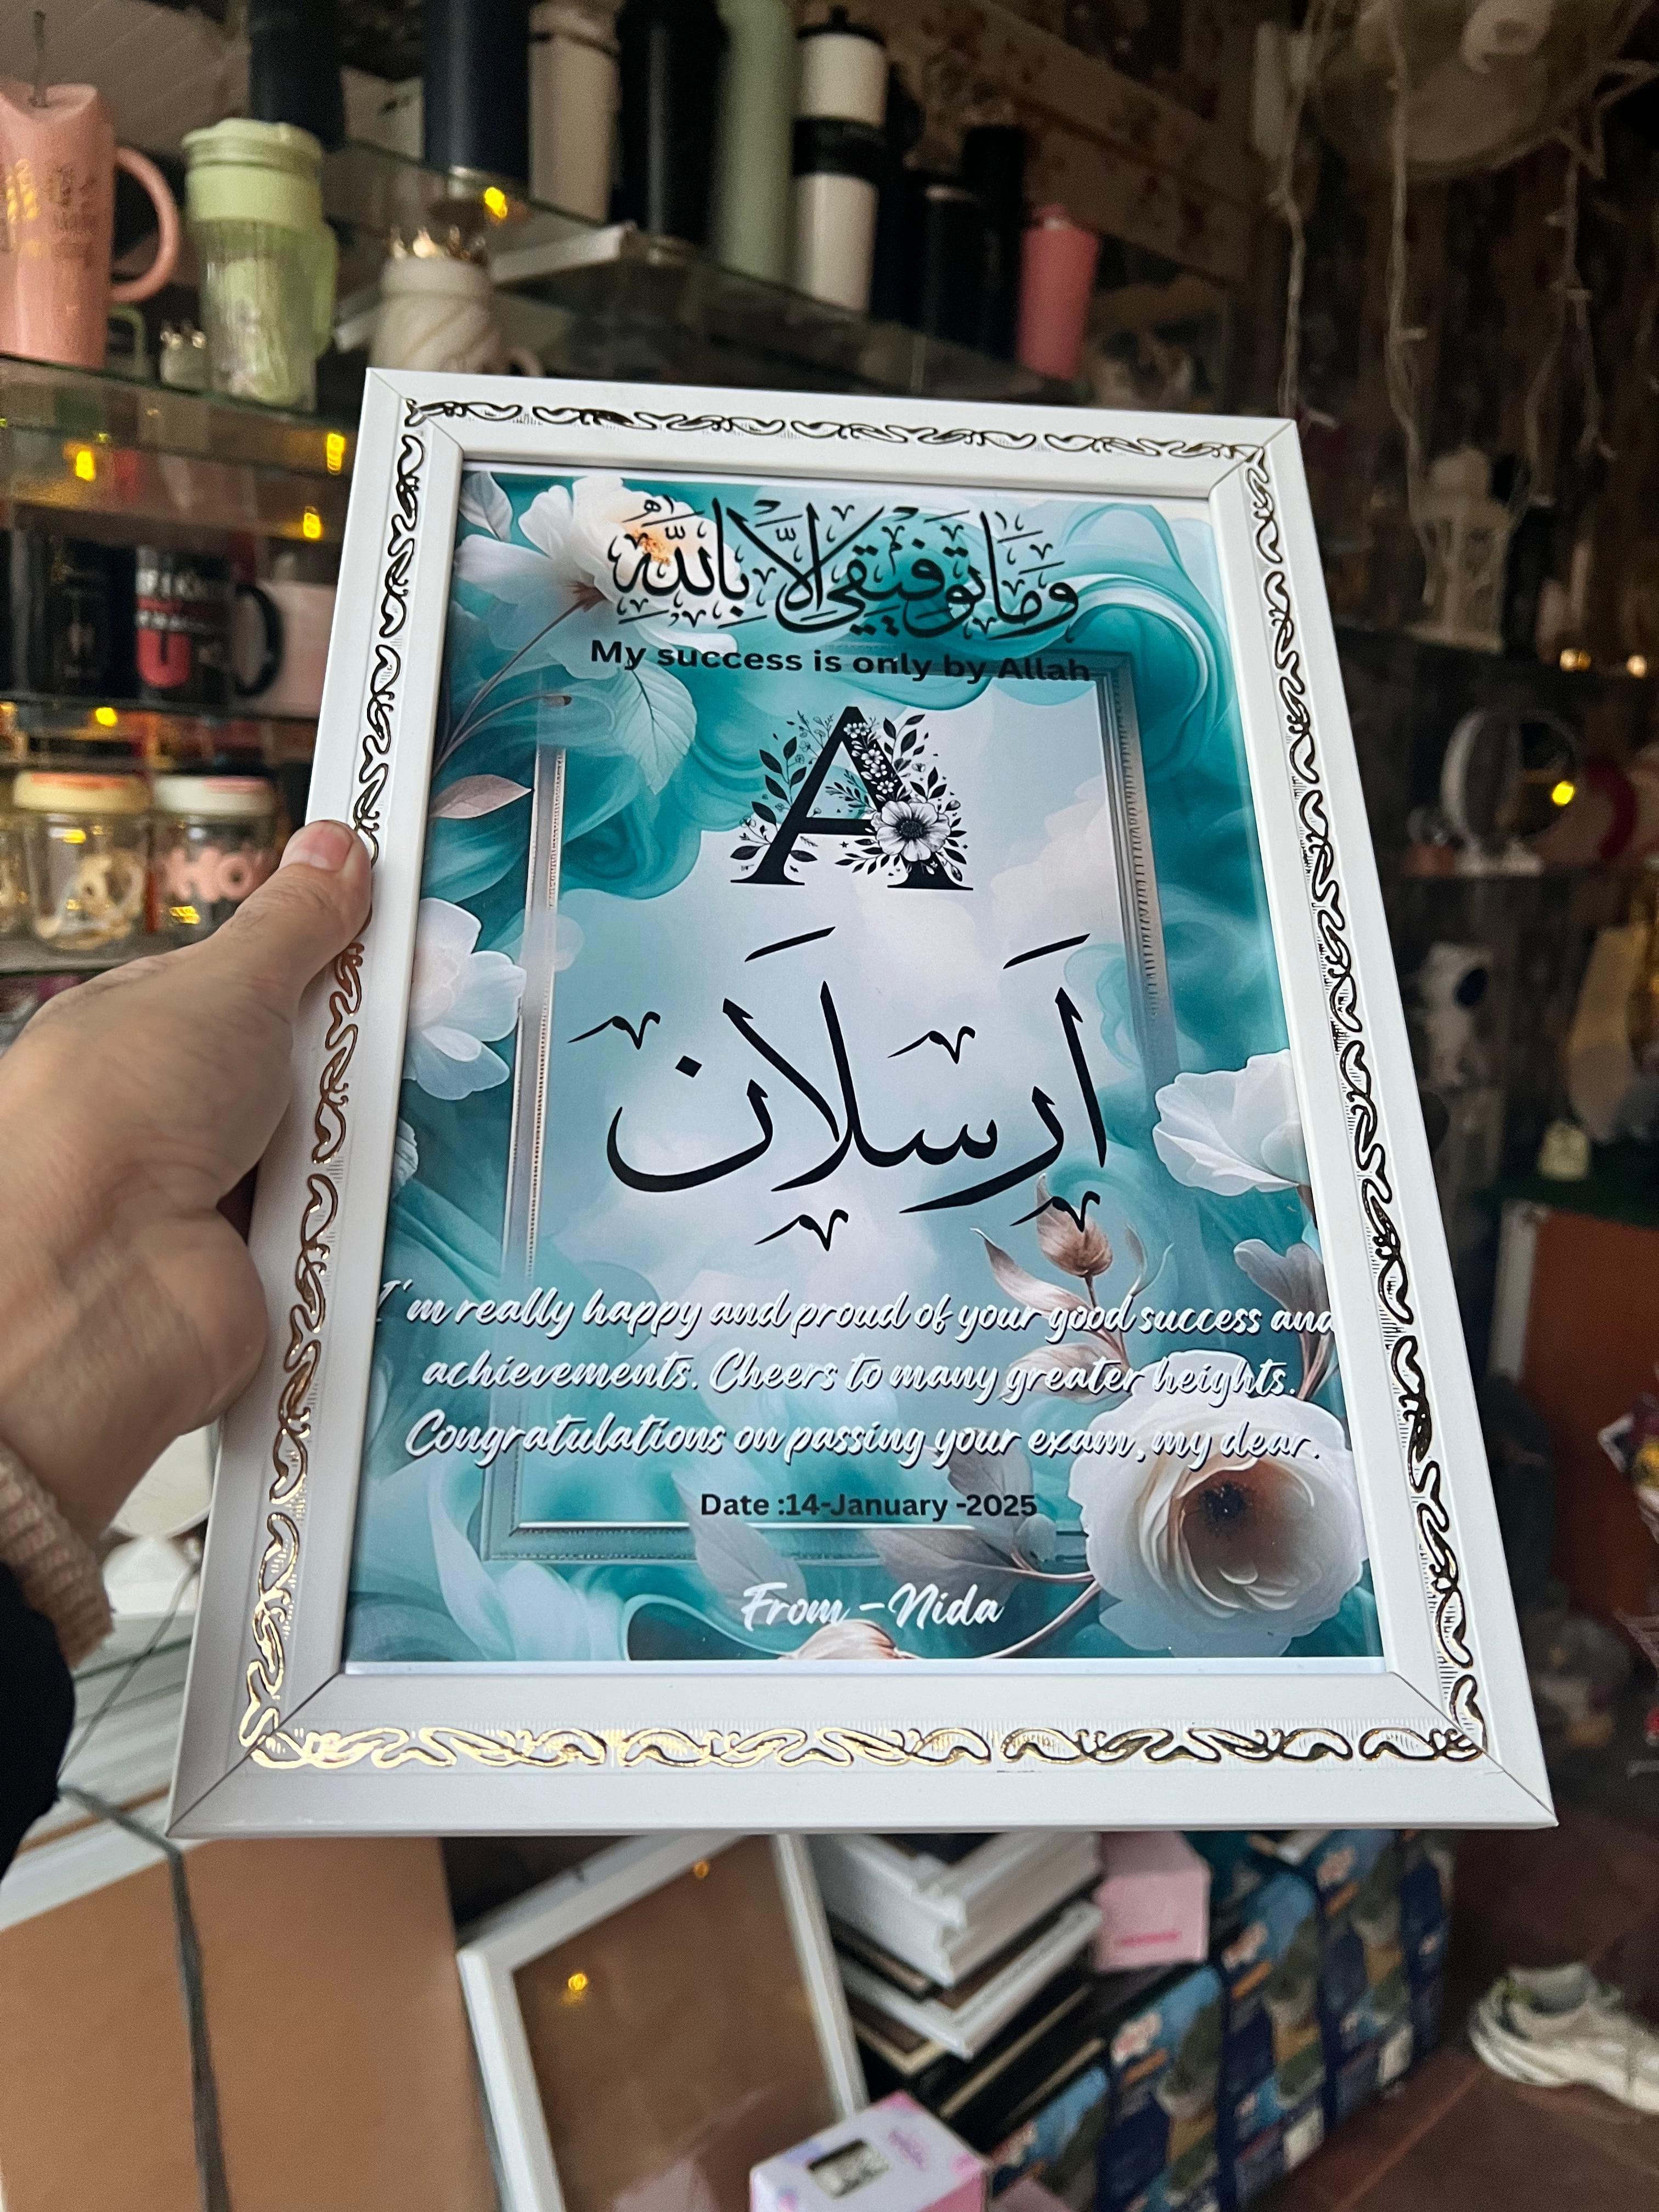 وَمَا تَوْفِيقِي إِلَّا بِاللَّهِ
My success is only by Allah
A
ارسلان
I'm really happy and proud of your good success and
achievements. Cheers to many greater heights.
Congratulations on passing your exam, my dear.
Date :14-January -2025
From -Nida